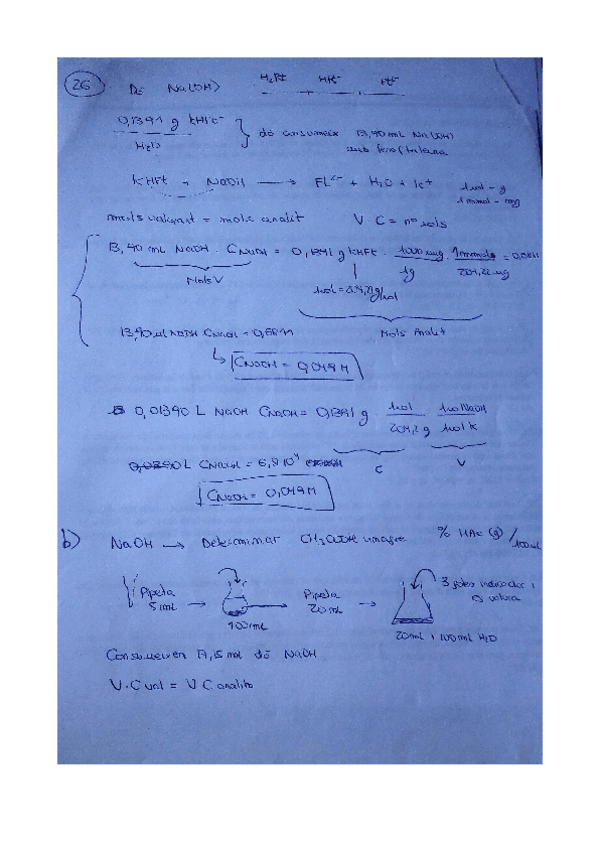 26 DS Na(OH) H₂Ft HFt⁻ Ft²⁻
0,1391 g KHFt
H₂O
do consumeix 13,90 mL Na(OH)
amb fenoftaleina
KHFt + NaOH → Ft²⁻ + H₂O + K⁺
1 mol - g
1 mmol - mg
mmols valorant = mols analit V · C = nº mols
13,90 mL NaOH · CNaOH = 0,1391 g KHFt · 1000 mg / 1g · 1 mmol / 204,22 mg
Mols V
1 mol = 204,22 g/mol
13,90 ml NaOH CNaOH = 0,6811
Mols Analit
CNaOH = 0,049 M
0,01390 L NaOH CNaOH = 0,1391 g 1 mol / 204,2 g 1 mol NaOH / 1 mol K
C V
L CNaOH = 6,8 10⁻⁴
CNaOH = 0,049 M
b) NaOH → Determinar CH₃COOH vinagre % HAc (g) / 100 ml
Pipeta
5 mL
→
100 mL
→
Pipeta
20 mL
→
3 gotes indicador i
es valora
20 ml i 100 ml H₂O
Consumeixen ml de NaOH
V · C val = V C analito